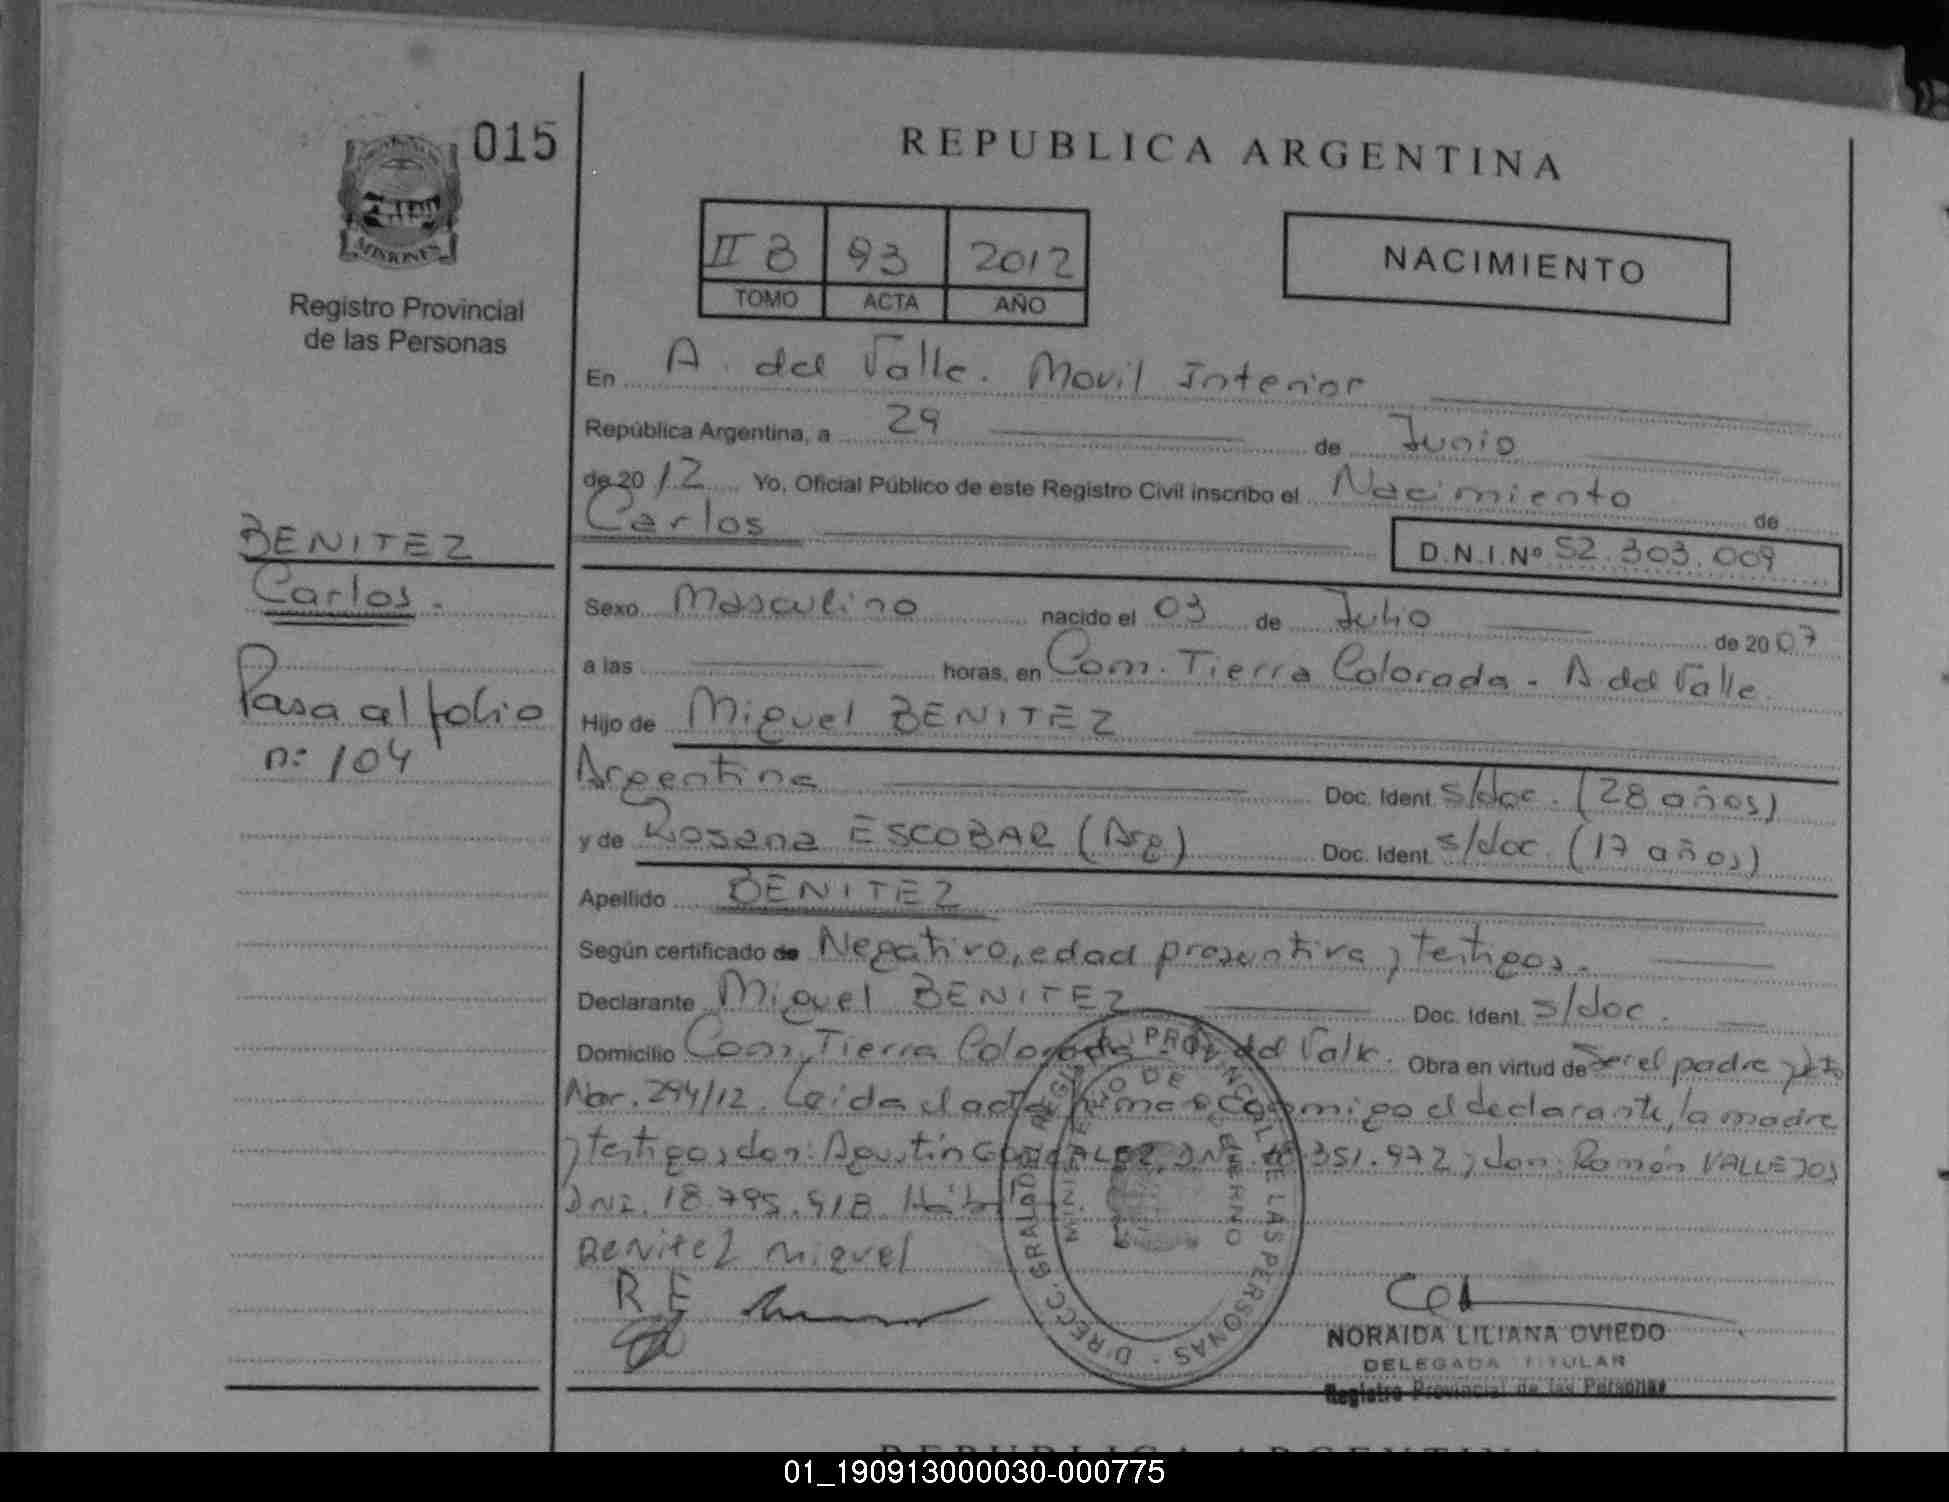 015
MISIONES
Registro Provincial
de las Personas
BENITEZ
Carlos.
Pasa al folio
nº 104
REPUBLICA ARGENTINA
II B 93 2012
TOMO ACTA AÑO
NACIMIENTO
En A. del Valle. Movil Interior
República Argentina, a 29 de Junio
de 20 12 Yo, Oficial Público de este Registro Civil inscribo el Nacimiento de
Carlos
D.N.I.Nº 52.303.009
Sexo Masculino nacido el 03 de Julio de 20 07
a las horas, en Com. Tierra Colorada - A del Valle.
Hijo de Miguel BENITEZ
Argentina Doc. Ident. s/doc. (28 años)
y de Rosana ESCOBAR (Arg) Doc. Ident. s/doc. (17 años)
Apellido BENITEZ
Según certificado de Negativo, edad presuntiva y testigos.
Declarante Miguel BENITEZ Doc. Ident. s/doc.
Domicilio Com. Tierra Colorada del Valle. Obra en virtud de Ser el padre y
Nor. 294/12. Leida el acta firma conmigo el declarante, la madre
y testigos don: Agustín GONZALEZ, DNI. 351.972 y don: Ramón VALLEJOS
DNI. 18.795.918.
BENITEZ miguel
R E
DIRECC. GRAL. DE REGISTRO PROVINCIAL DE LAS PERSONAS
MINISTERIO DE GOBIERNO
NORAIDA LILIANA OVIEDO
DELEGADA TITULAR
Registro Provincial de las Personas
REPUBLICA ARGENTINA
01_190913000030-000775